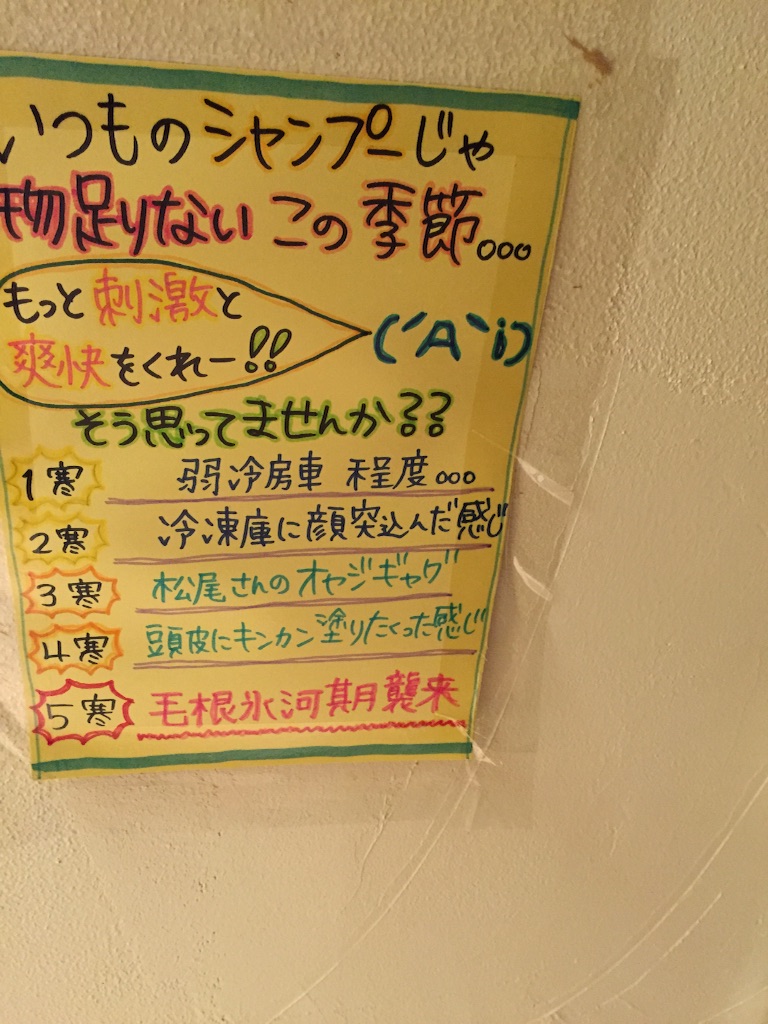 いつものシャンプーじゃ
物足りない この季節。。。
もっと刺激と
爽快をくれー!!
(´A`i)
そう思ってませんか??
1寒 弱冷房車 程度。。。
2寒 冷凍庫に顔突込んだ感じ
3寒 松尾さんのオヤジギャグ
4寒 頭皮にキンカン塗りたくった感じ
5寒 毛根氷河期襲来